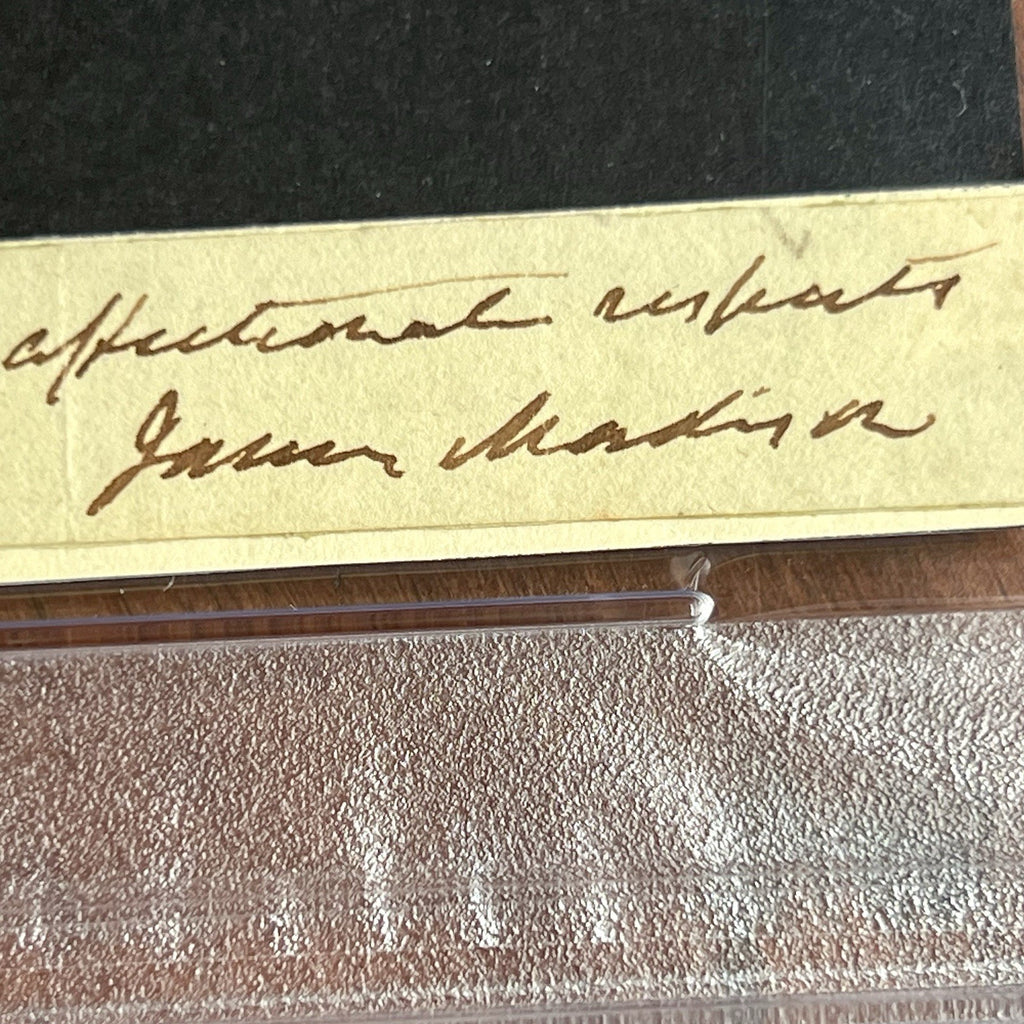 affectionate respects
James Madison